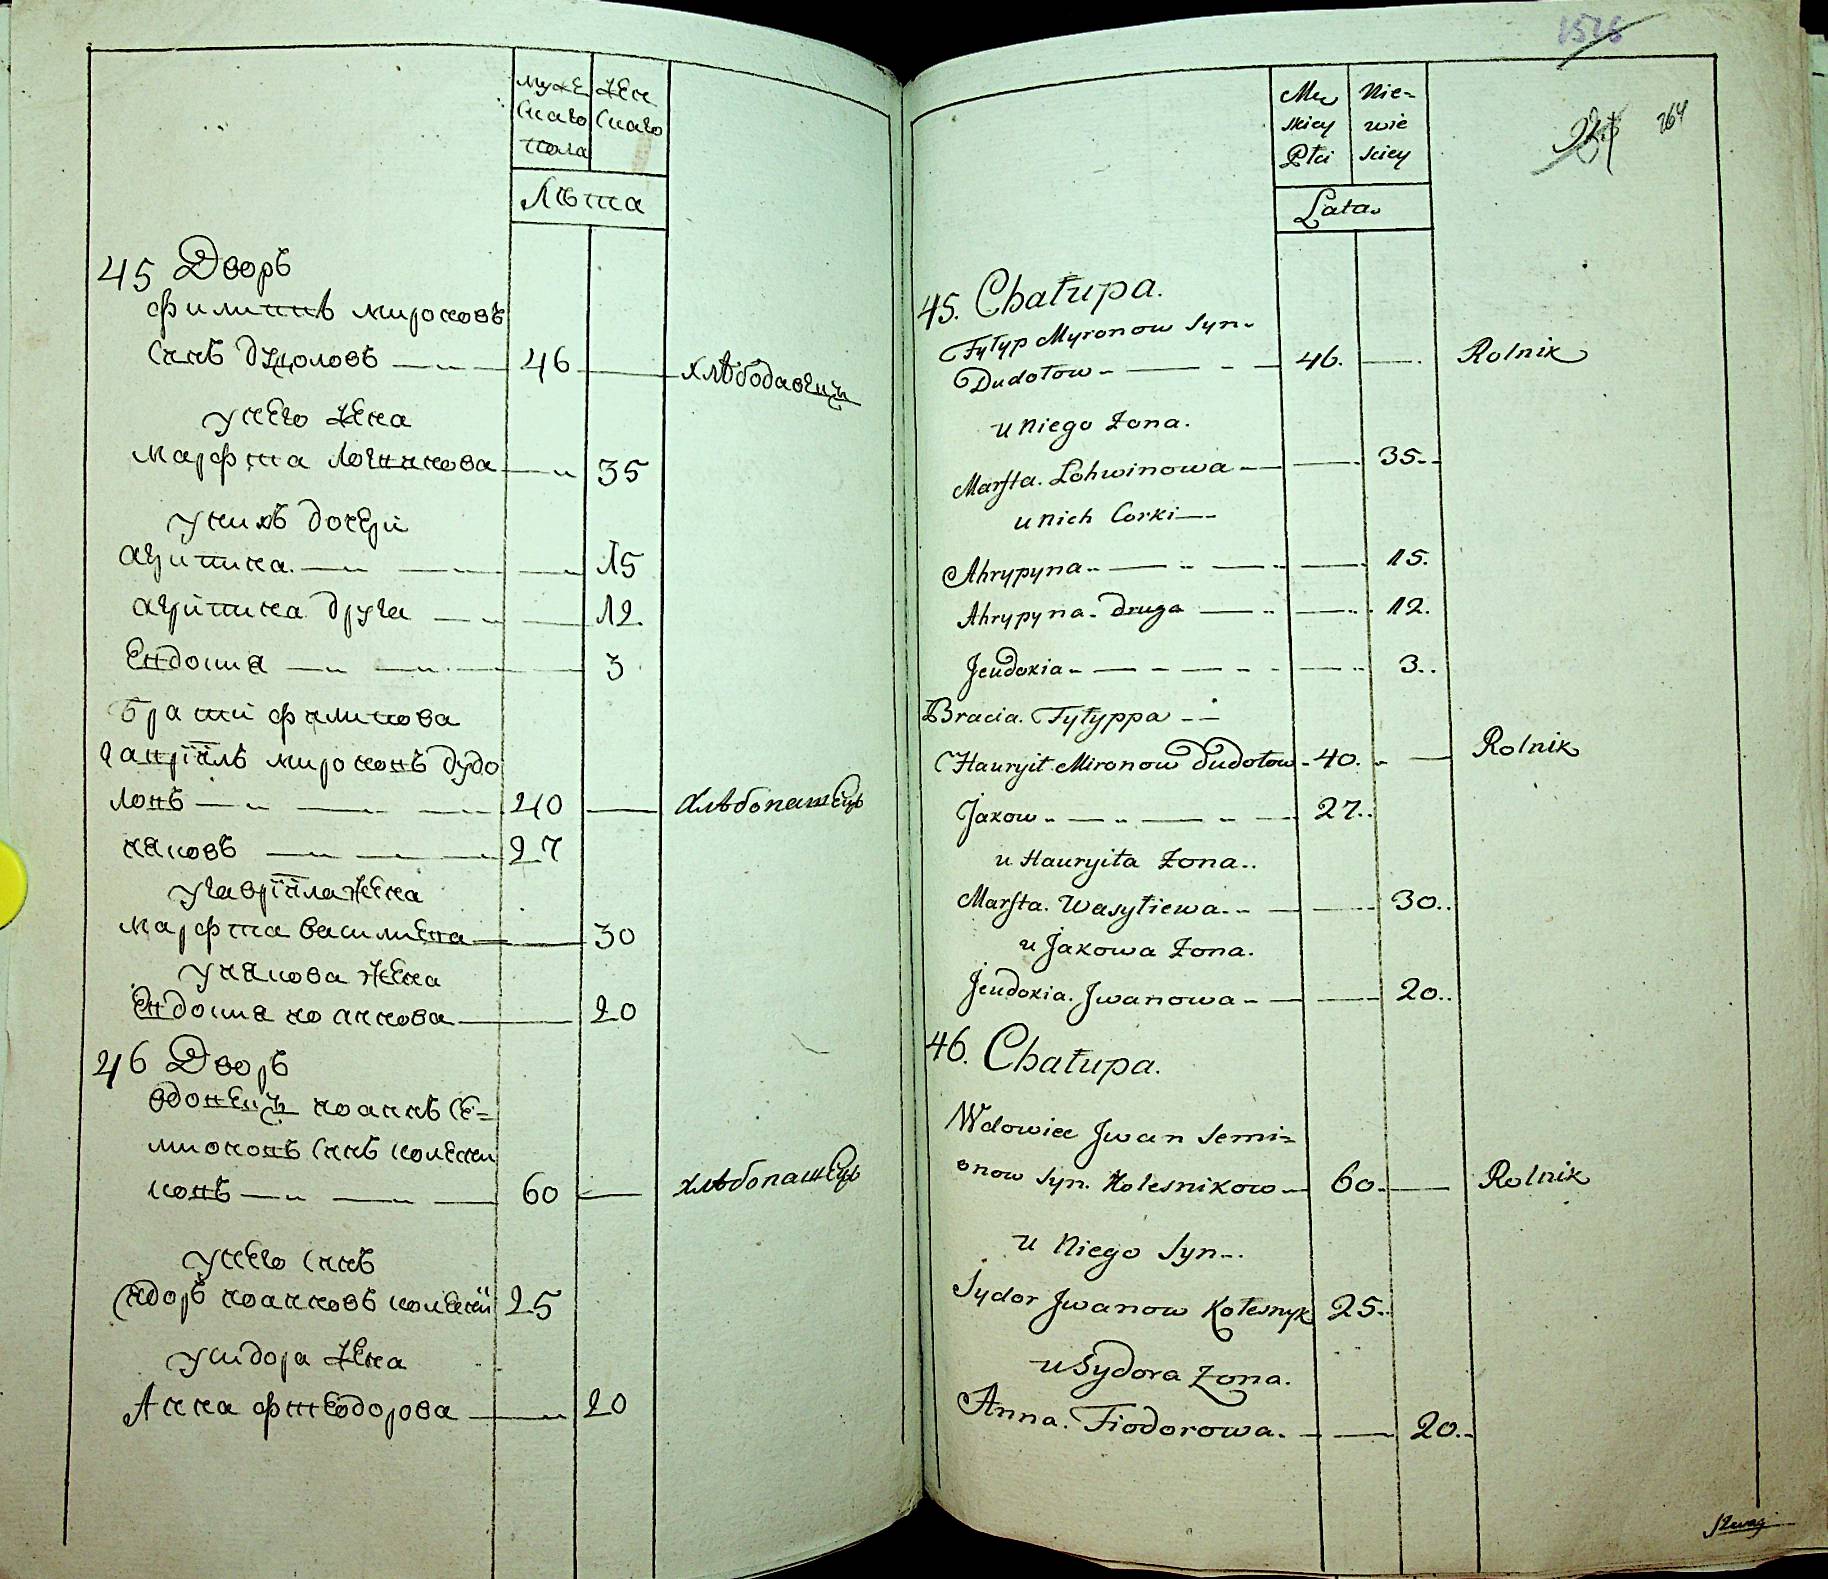 муже
скаго
пола
жен
скаго
Лѣта
45 Дворъ
филиппъ мироновъ
сынъ дудоловъ 46 хлѣбопашецъ
унего жена
марфта логвинова 35
унихъ дочери
агрипина 15
агрипина друга 12
Евдокия 3
брати филипова
гавріилъ мироновъ дудо
ловъ 40 хлѣбопашецъ
яковъ 27
угавріила жена
марфта василиева 30
уякова жена
Евдокия иоаннова 20
46 Дворъ
вдовецъ иоаннъ се=
мионовъ сынъ колесни
ковъ 60 хлѣбопашецъ
унего сынъ
сидоръ иоанновъ 25
усидора жена
Анна фтеодорова 20
1518
264
Mę
skiey
Płci
Nie=
wie
sciey
Lata
45. Chałupa.
Fyłyp Myronow Syn
Dudołow 46. Rolnik
u Niego Żona.
Marfta. Lohwinowa 35.
u Nich Corki
Ahrypyna 15.
Ahrypyna. Druga 12.
Jeudokia 3.
Bracia. Fyłyppa
Hauryił Mironow Dudołow 40. Rolnik
Jakow 27.
u Hauryiła Żona.
Marfta. Wasyliewa. 30.
u Jakowa Żona.
Jeudokia. Jwanowa 20.
46. Chałupa.
Wdowiec Jwan Semi=
onow Syn. Kolesnikow 60. Rolnik
u Niego Syn
Sydor Jwanow Kolesnyk 25.
u Sydora Żona.
Anna. Fiodorowa. 20.